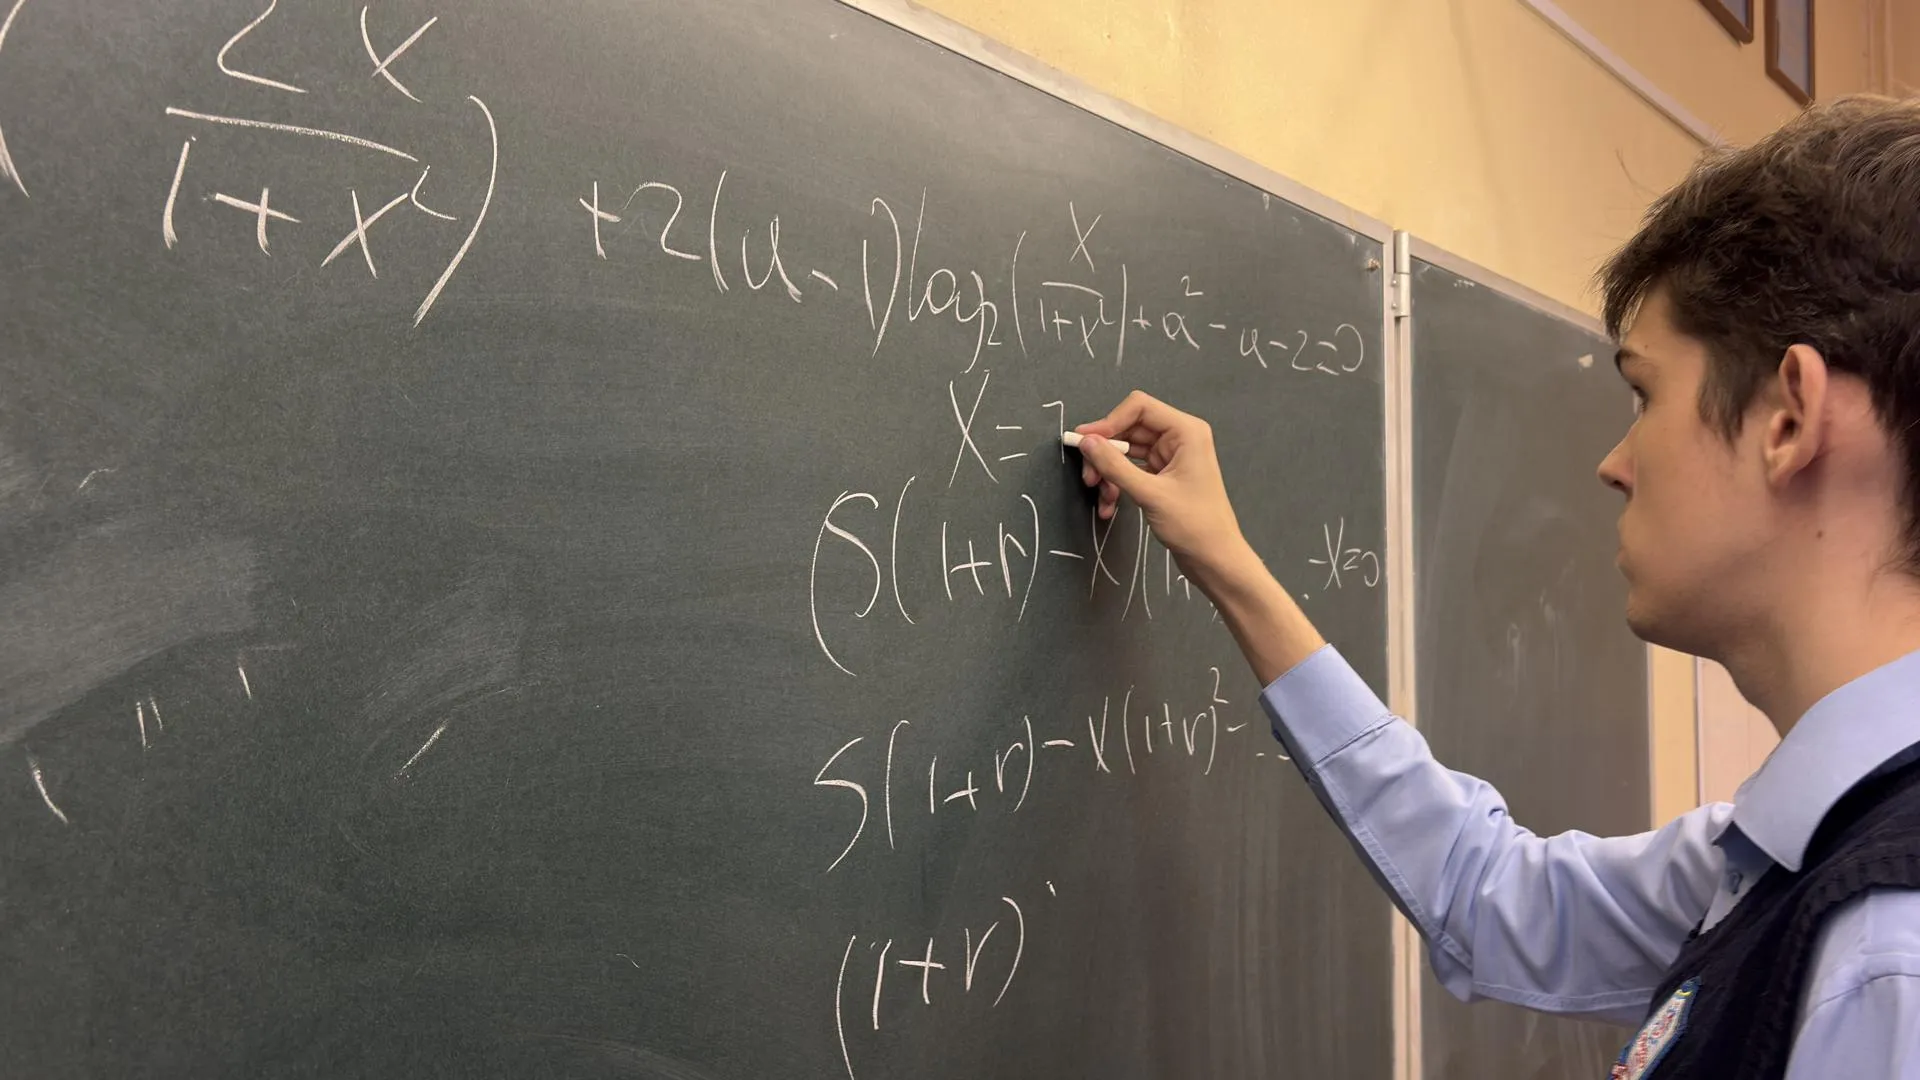 ( 2x / 1+x² ) +2(a-1)log₂(x / 1+x²)+a²-a-2=0
X=7
(S(1+r)-X)(1+ -X=0
S(1+r)-X(1+r)²-
(1+r)